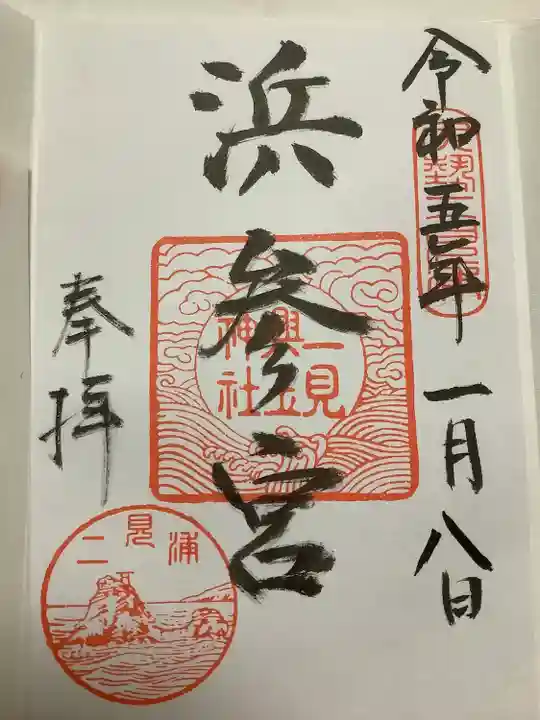 令和五年一月八日
浜参宮
二見興玉神社
奉拝
二見浦